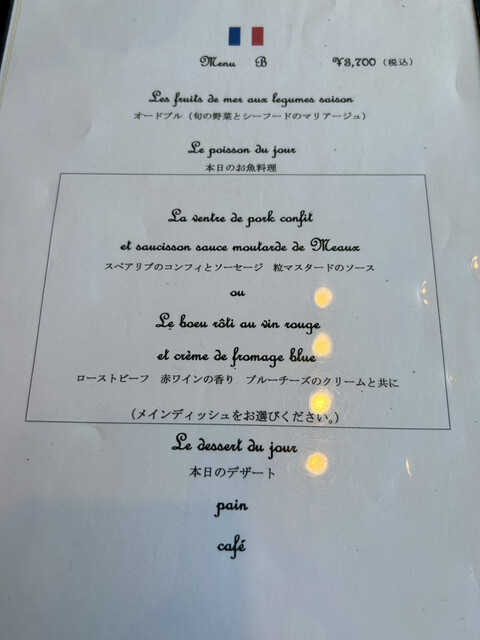 Menu B ¥3,700（税込）
Les fruits de mer aux legumes saison
オードブル（旬の野菜とシーフードのマリアージュ）
Le poisson du jour
本日のお魚料理
La ventre de pork confit
et saucisson sauce moutarde de Meaux
スペアリブのコンフィとソーセージ 粒マスタードのソース
ou
Le boeu rôti au vin rouge
et crème de fromage blue
ローストビーフ 赤ワインの香り ブルーチーズのクリームと共に
（メインディッシュをお選びください。）
Le dessert du jour
本日のデザート
pain
café